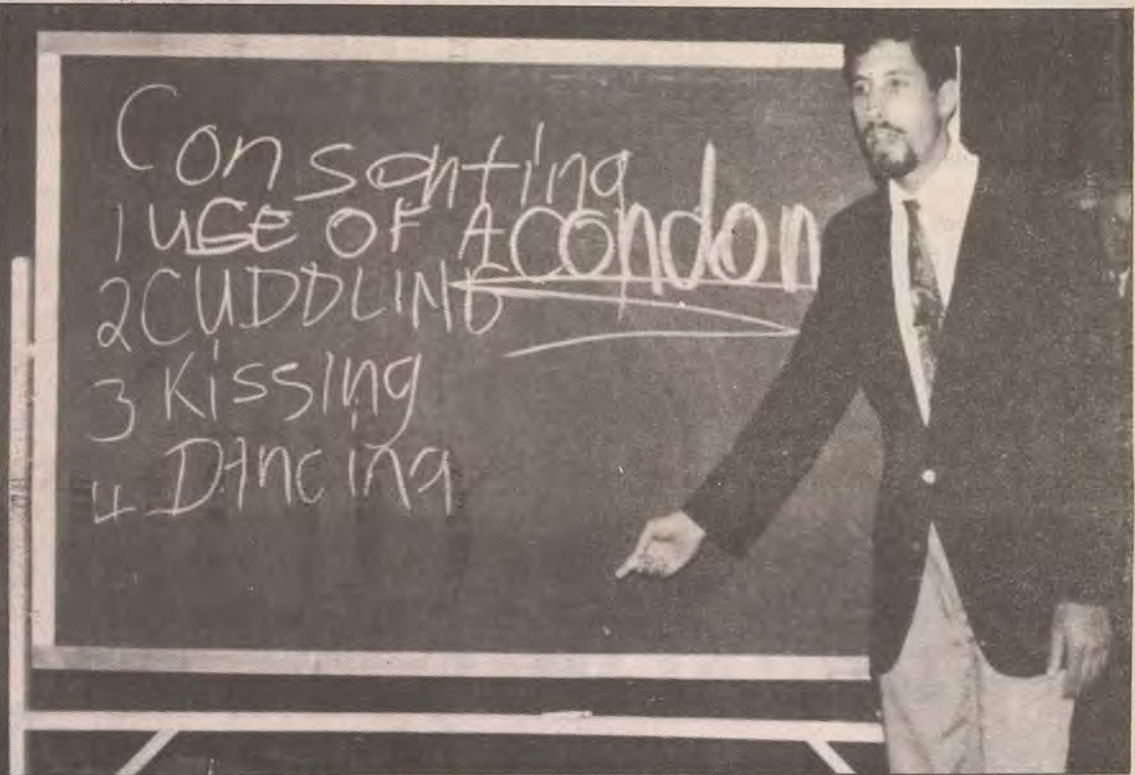 Consenting
1 USE OF A condon
2 CUDDLING
3 Kissing
4 DAncing